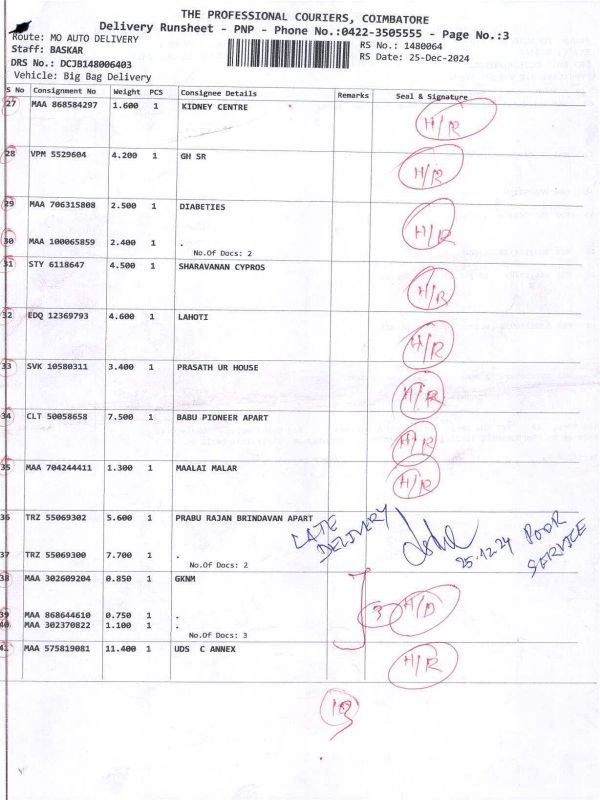 THE PROFESSIONAL COURIERS, COIMBATORE
Delivery Runsheet - PNP - Phone No.:0422-3505555 - Page No.:3
Route: MO AUTO DELIVERY
Staff: BASKAR
RS No.: 1480064
DRS No.: DCJB148006403
RS Date: 25-Dec-2024
Vehicle: Big Bag Delivery
S No Consignment No Weight PCS Consignee Details Remarks Seal & Signature
27 MAA 868584297 1.600 1 KIDNEY CENTRE H/R
28 VPM 5529604 4.200 1 GH SR H/R
29 MAA 706315808 2.500 1 DIABETIES H/R
30 MAA 100065859 2.400 1 .
No.Of Docs: 2
31 STY 6118647 4.500 1 SHARAVANAN CYPROS H/R
32 EDQ 12369793 4.600 1 LAHOTI H/R
33 SVK 10580311 3.400 1 PRASATH UR HOUSE H/R
34 CLT 50058658 7.500 1 BABU PIONEER APART H/R
35 MAA 704244411 1.300 1 MAALAI MALAR H/R
36 TRZ 55069302 5.600 1 PRABU RAJAN BRINDAVAN APART LATE DELIVERY 25.12.24 POOR SERVICE
37 TRZ 55069300 7.700 1 .
No.Of Docs: 2
38 MAA 302609204 0.850 1 GKNM
39 MAA 868644610 0.750 1 . 3 H/D
40 MAA 302370822 1.100 1 .
No.Of Docs: 3
41 MAA 575819081 11.400 1 UDS C ANNEX H/R